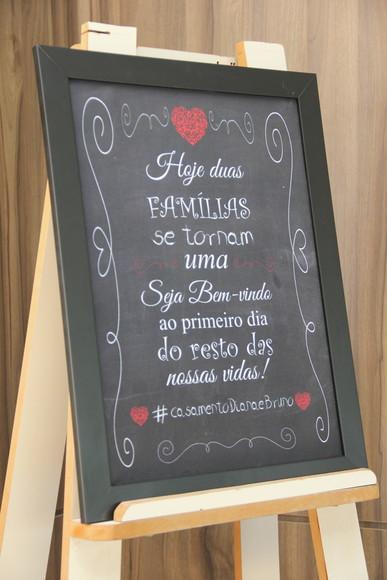 Hoje duas
FAMÍLIAS
se tornam
uma
Seja Bem-vindo
ao primeiro dia
do resto das
nossas vidas!
#casamentoDianaeBruno